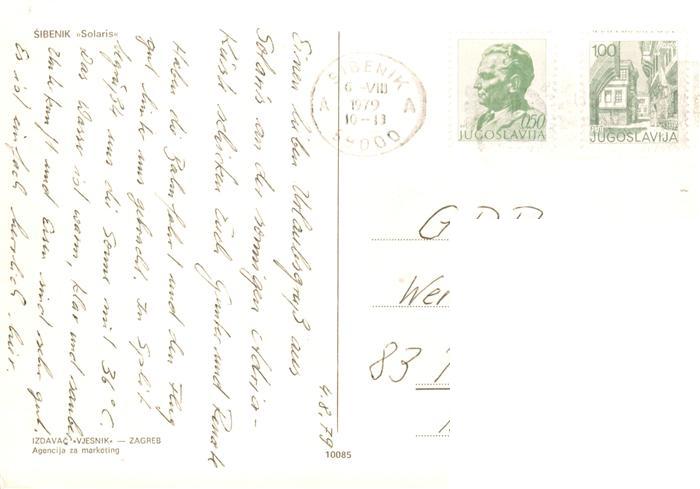 ŠIBENIK »Solaris«
4.8.79
Einen lieben Urlaubsgruß aus
Solaris an der sonnigen Adria-
Küste schicken Euch Gunter und Renate
Haben die Bahnfahrt und den Flug
gut hinter uns gebracht. In Split
begrüßte uns die Sonne mit 36°C.
Das Wasser ist warm, klar und sauber
Unterkunft und Essen sind sehr gut.
Es ist einfach herrlich hier.
IZDAVAČ »VJESNIK« — ZAGREB
Agencija za marketing
10085
ŠIBENIK
6-VIII
1979
10-13
A A
JUGOSLAVIJA 0,50
1,00
JUGOSLAVIJA
GDR
83